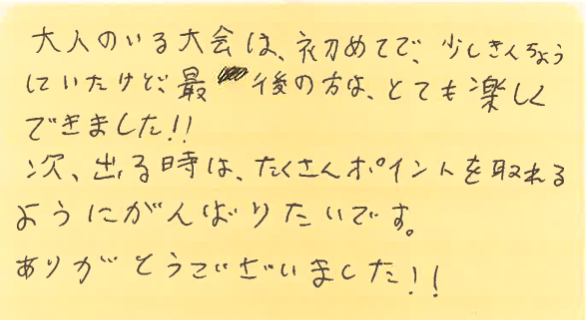 大人のいる大会は、初めてで、少しきんちょう
していたけど、最後の方は、とても楽しく
できました!!
次、出る時は、たくさんポイントを取れる
ようにがんばりたいです。
ありがとうございました!!